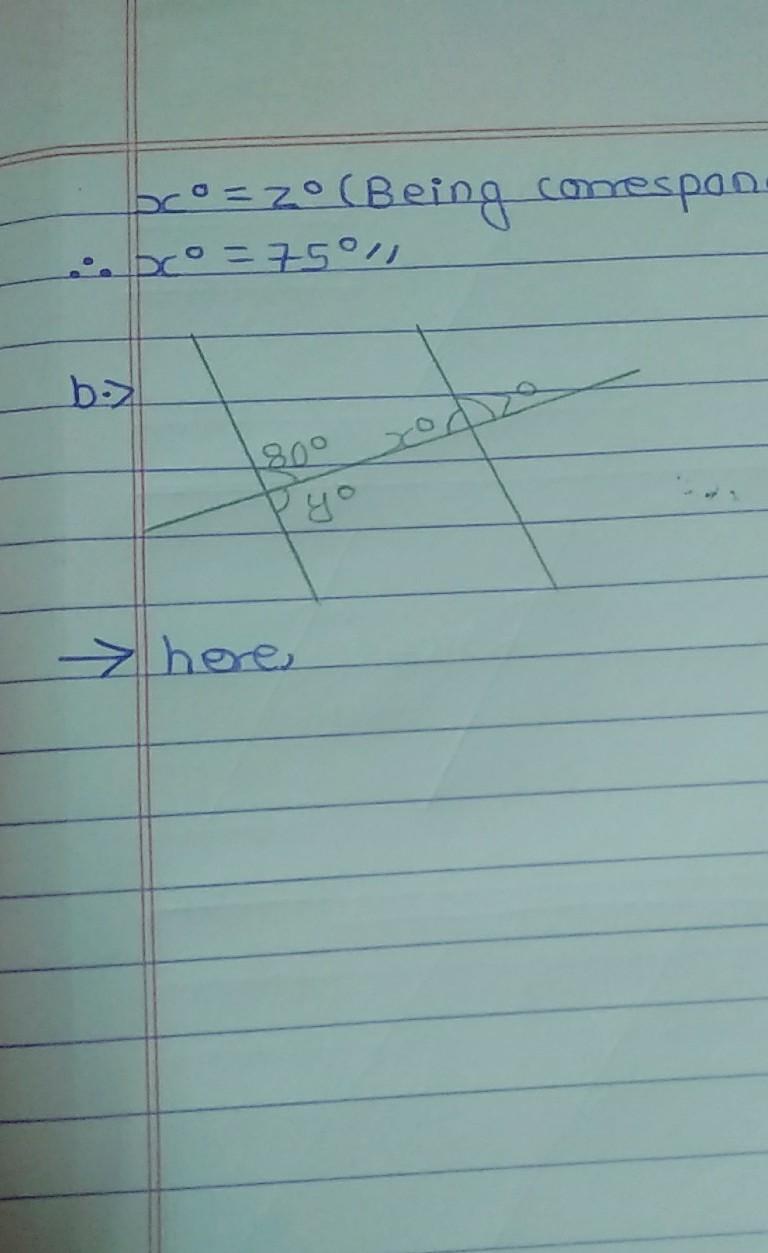 x° = z° (Being correspon
∴ x° = 75°//
b.>
80° x° z°
y°
→ here,